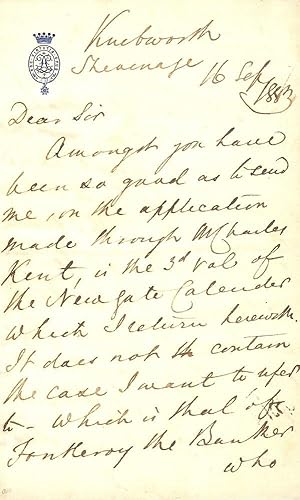 Knebworth
Stevenage
16 Sep
1883
Dear Sir
Amongst you have
been so good as to send
me, on the application
made through Mr Charles
Kent, is the 3d vol of
the Newgate Calender
which I return herewith.
It does not contain
the case I want to refer
to - which is that of
Fontleroy the Banker
who